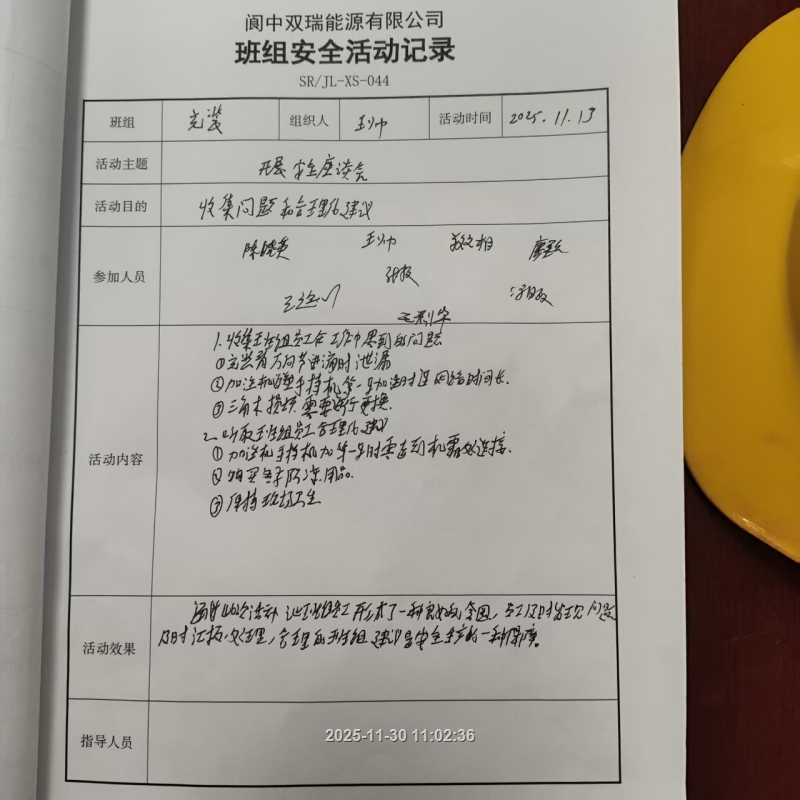 阆中双瑞能源有限公司
班组安全活动记录
SR/JL-XS-044
班组 充装 组织人 王帅 活动时间 2025.11.13
活动主题 开展安全座谈会
活动目的 收集问题和合理化建议
参加人员
陈晓英 王帅
活动内容
1.收集班组员工在工作中遇到的问题
①充装前万向节泄漏
②加注机手持机第一号加注时网络时间长.
③三角木损坏需要进行更换.
2.听取班组员工合理化建议
①加注机手持机加第一号时需查到机器好连接.
②购买冬季防冻用品.
③保持现场卫生
活动效果
通过此次活动让班组员工形成了一种良好的氛围,员工及时发现问题
及时汇报、处理,合理的班组建议是安全生产的一种保障。
指导人员
2025-11-30 11:02:36